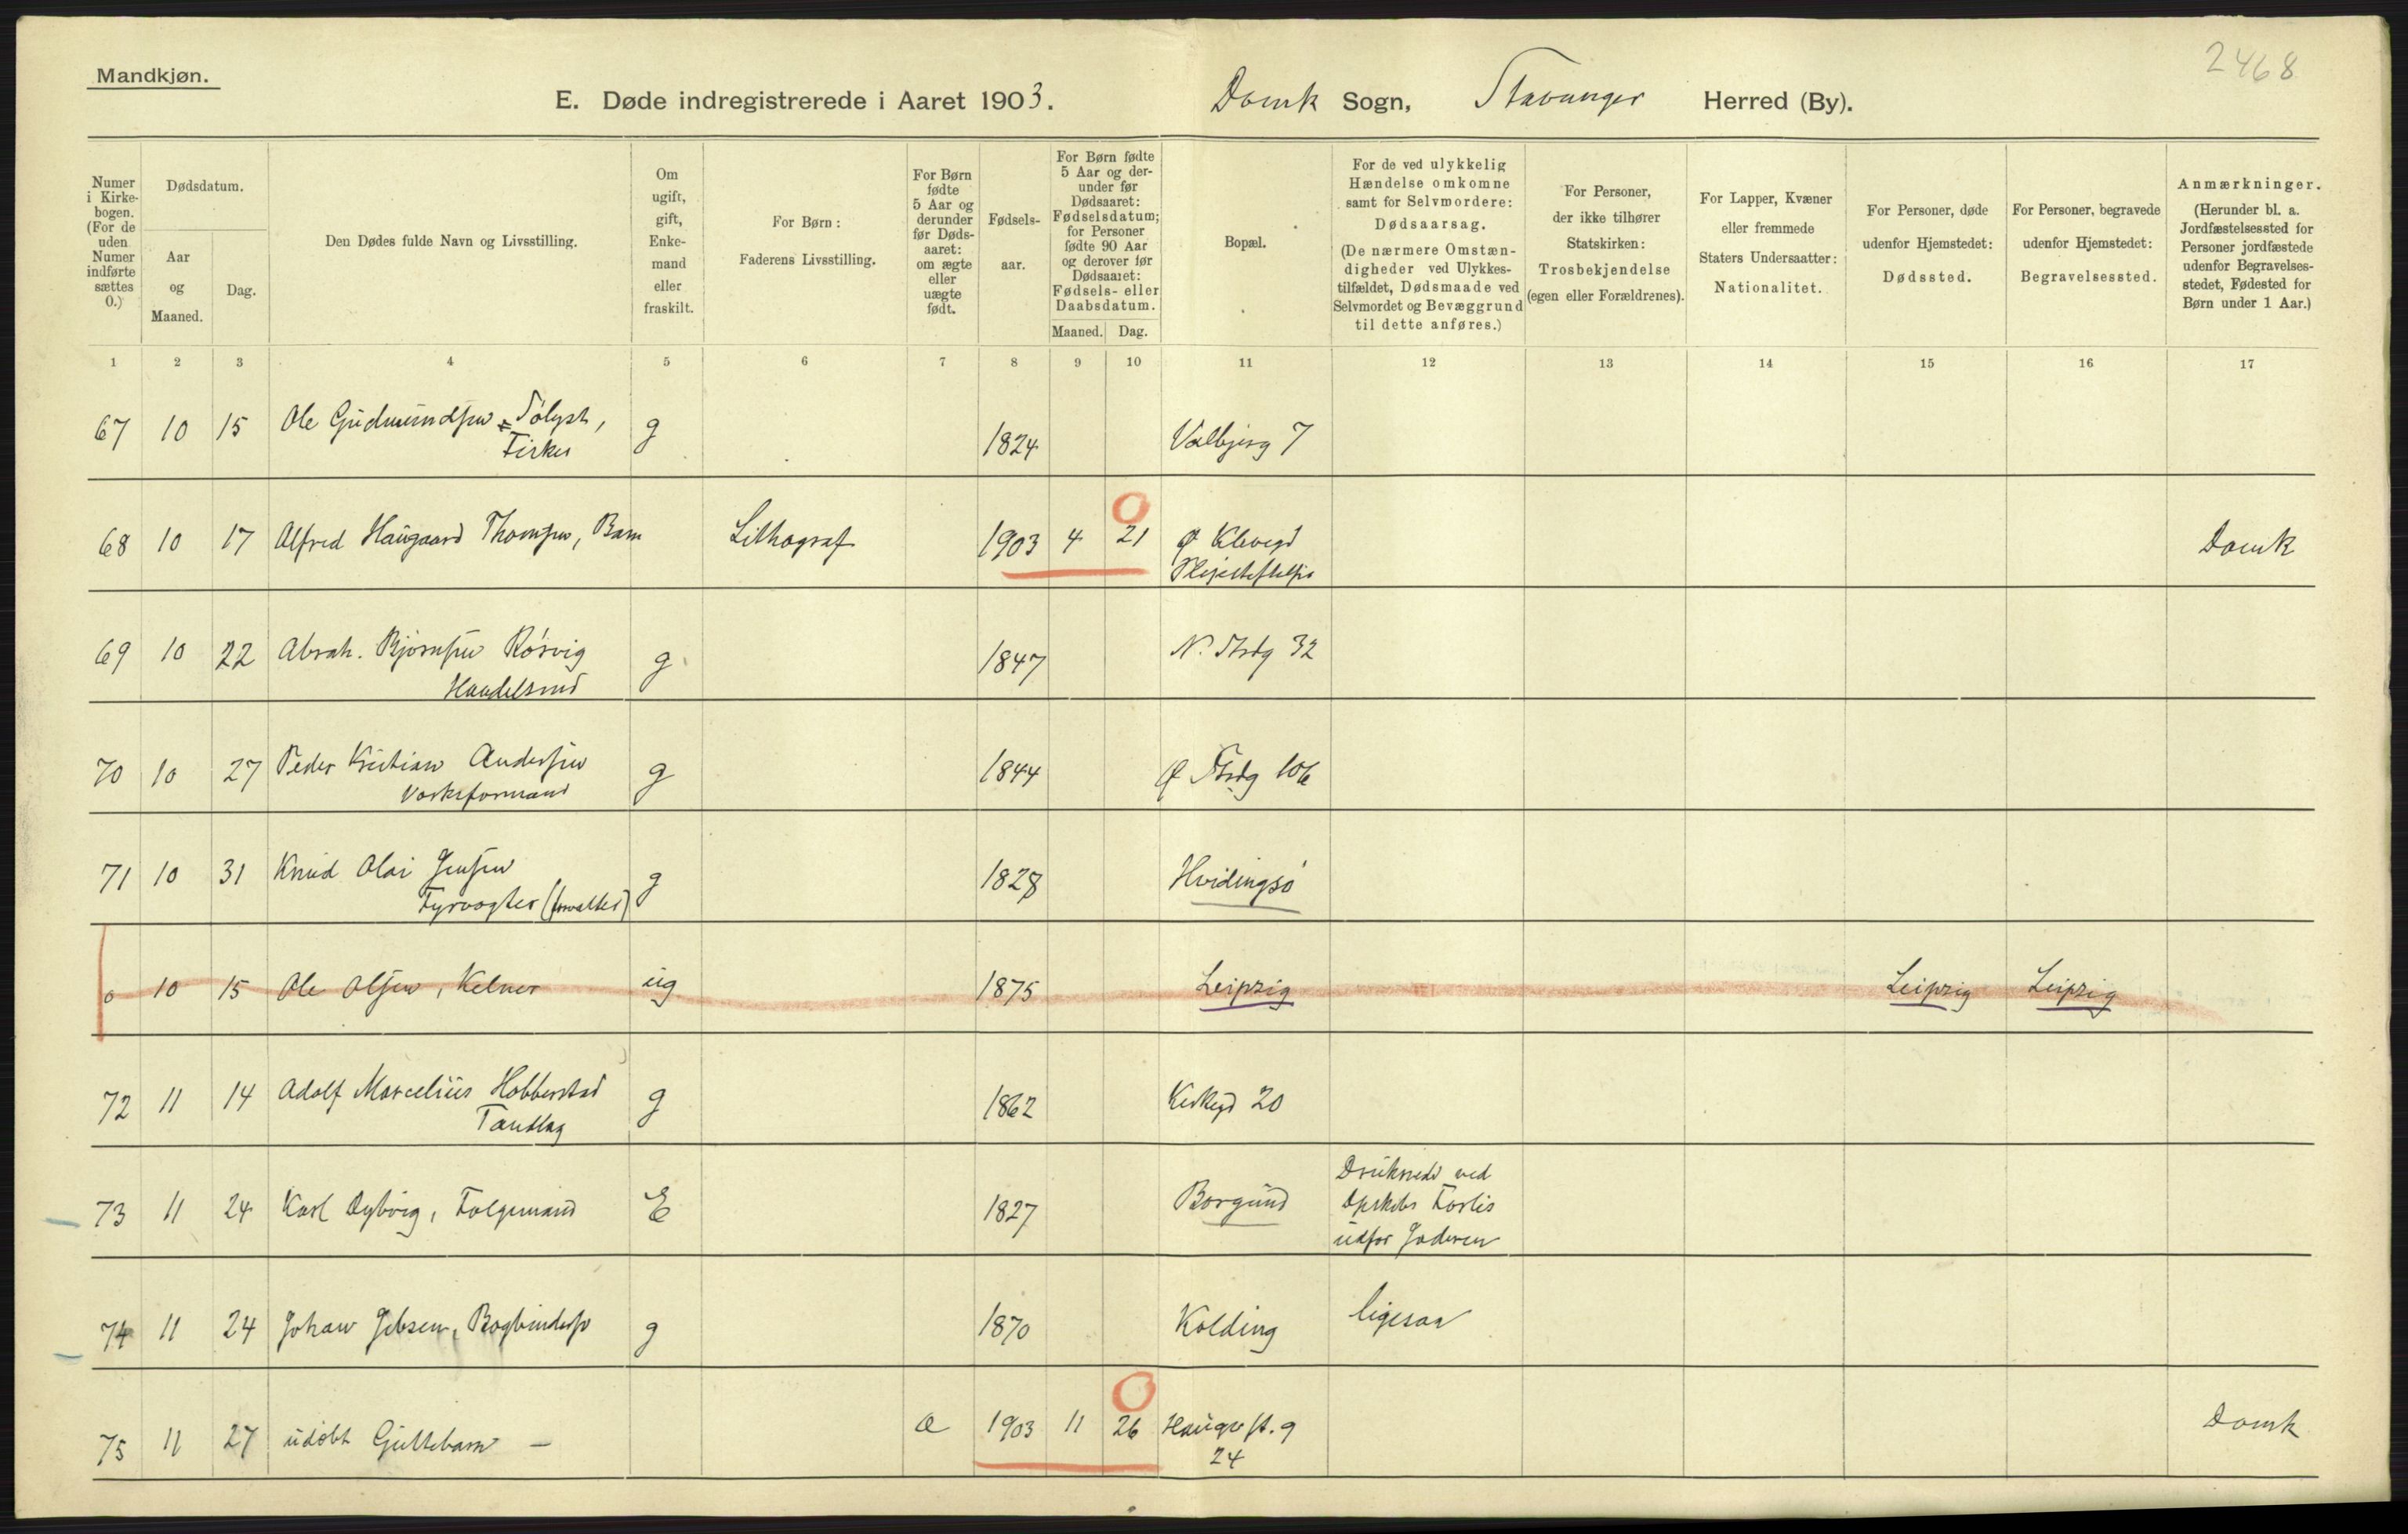 Mandkjøn.
2468
E. Døde indregistrerede i Aaret 1903. Domk Sogn, Stavanger Herred (By).
Numer i Kirkebogen. (For de uden Numer indførte sættes 0.)
Dødsdatum.
Aar og Maaned.
Dag.
Den Dødes fulde Navn og Livsstilling.
Om ugift, gift, Enkemand eller fraskilt.
For Børn: Faderens Livsstilling.
For Børn fødte 5 Aar og derunder før Dødsaaret: om ægte eller uægte født.
Fødselsaar.
For Børn fødte 5 Aar og derunder før Dødsaaret: Fødselsdatum; for Personer fødte 90 Aar og derover før Dødsaaret: Fødsels- eller Daabsdatum.
Maaned. Dag.
Bopæl.
For de ved ulykkelig Hændelse omkomne samt for Selvmordere: Dødsaarsag. (De nærmere Omstændigheder ved Ulykkestilfældet, Dødsmaade ved Selvmordet og Bevæggrund til dette anføres.)
For Personer, der ikke tilhører Statskirken: Trosbekjendelse (egen eller Forældrenes).
For Lapper, Kvæner eller fremmede Staters Undersaatter: Nationalitet.
For Personer, døde udenfor Hjemstedet: Dødssted.
For Personer, begravede udenfor Hjemstedet: Begravelsessted.
Anmærkninger. (Herunder bl. a. Jordfæstelsessted for Personer jordfæstede udenfor Begravelsesstedet, Fødested for Børn under 1 Aar.)
1 2 3 4 5 6 7 8 9 10 11 12 13 14 15 16 17
67 10 15 Ole Gudmundsen Sølyst, g 1824 Valbjerg 7
Fisker
68 10 17 Alfred Haugaard Thomsen, Barn Lithograf 1903 4 21 Ø Klevegd Domk
69 10 22 Abrah. Bjørnsen Rosvig g 1847 N. Strdg 32
Handelsmd
70 10 27 Peder Kristian Andersen g 1844 Ø Strdg 106
Værksformand
71 10 31 Knud Olai Jensen g 1828 Hvidingsø
Fyrvogter (forvalter)
0 10 15 Ole Olsen, Kelner ug 1875 Leipzig Leipzig Leipzig
72 11 14 Adolf Marcelius Hobberstad g 1862 Kirkegd 20
Tandlæg
73 11 24 Karl Dybvig, Følgemand E 1827 Borgund Druknede ved
Dpskibs Forlis
udfor Jæderen
74 11 24 Johan Jebsen, Bogbinder g 1870 Kolding ligesaa
75 11 27 udøbt Guttebarn – æ 1903 11 26 Haugv st. 9 Domk
24